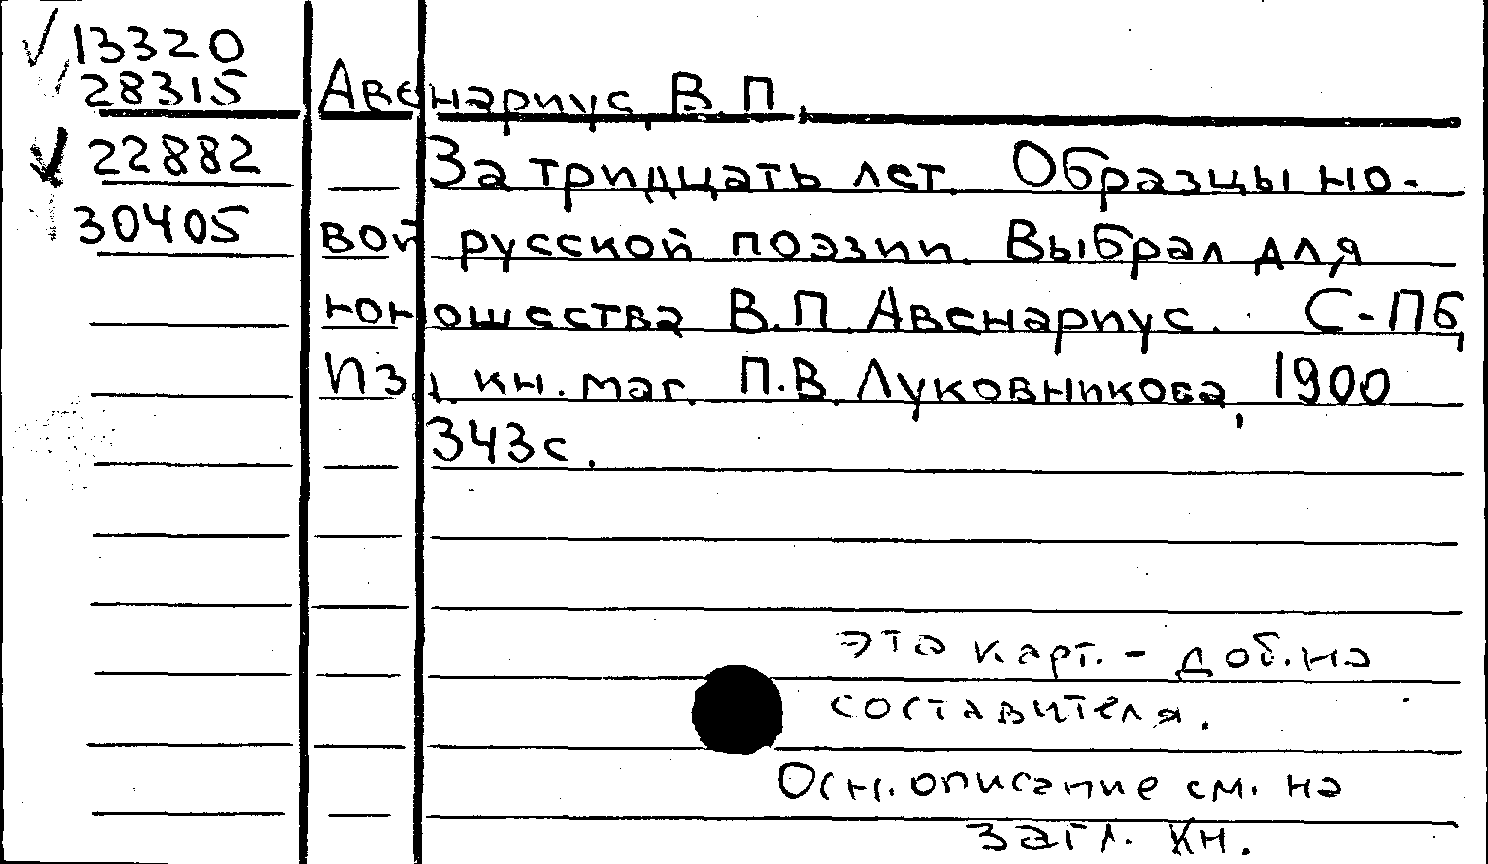 13320
28315
22882
30405
Авенариус, В.П.
За тридцать лет. Образцы но-
вой русской поэзии. Выбрал для
юношества В.П. Авенариус. С-Пб,
Изд. кн. маг. П.В. Луковникова, 1900
343с.
эта карт. - доб. на
составителя.
Осн. описание см. на
загл. кн.